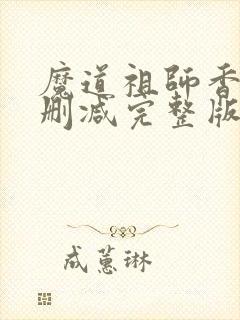 魔道祖師香
刪减完整版
成蕙琳